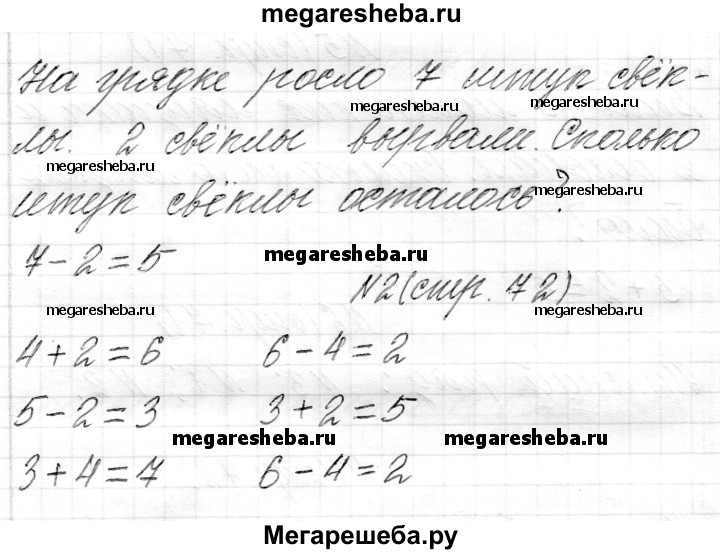 megaresheba.ru
На грядке росло 7 штук свёк-
megaresheba.ru megaresheba.ru
лы. 2 свёклы вырвали. Сколько
megaresheba.ru
штук свёклы осталось?
megaresheba.ru
7 - 2 = 5
megaresheba.ru
N2 (стр. 72)
megaresheba.ru megaresheba.ru
4 + 2 = 6 6 - 4 = 2
5 - 2 = 3 3 + 2 = 5
megaresheba.ru megaresheba.ru
3 + 4 = 7 6 - 4 = 2
Мегарешеба.ру